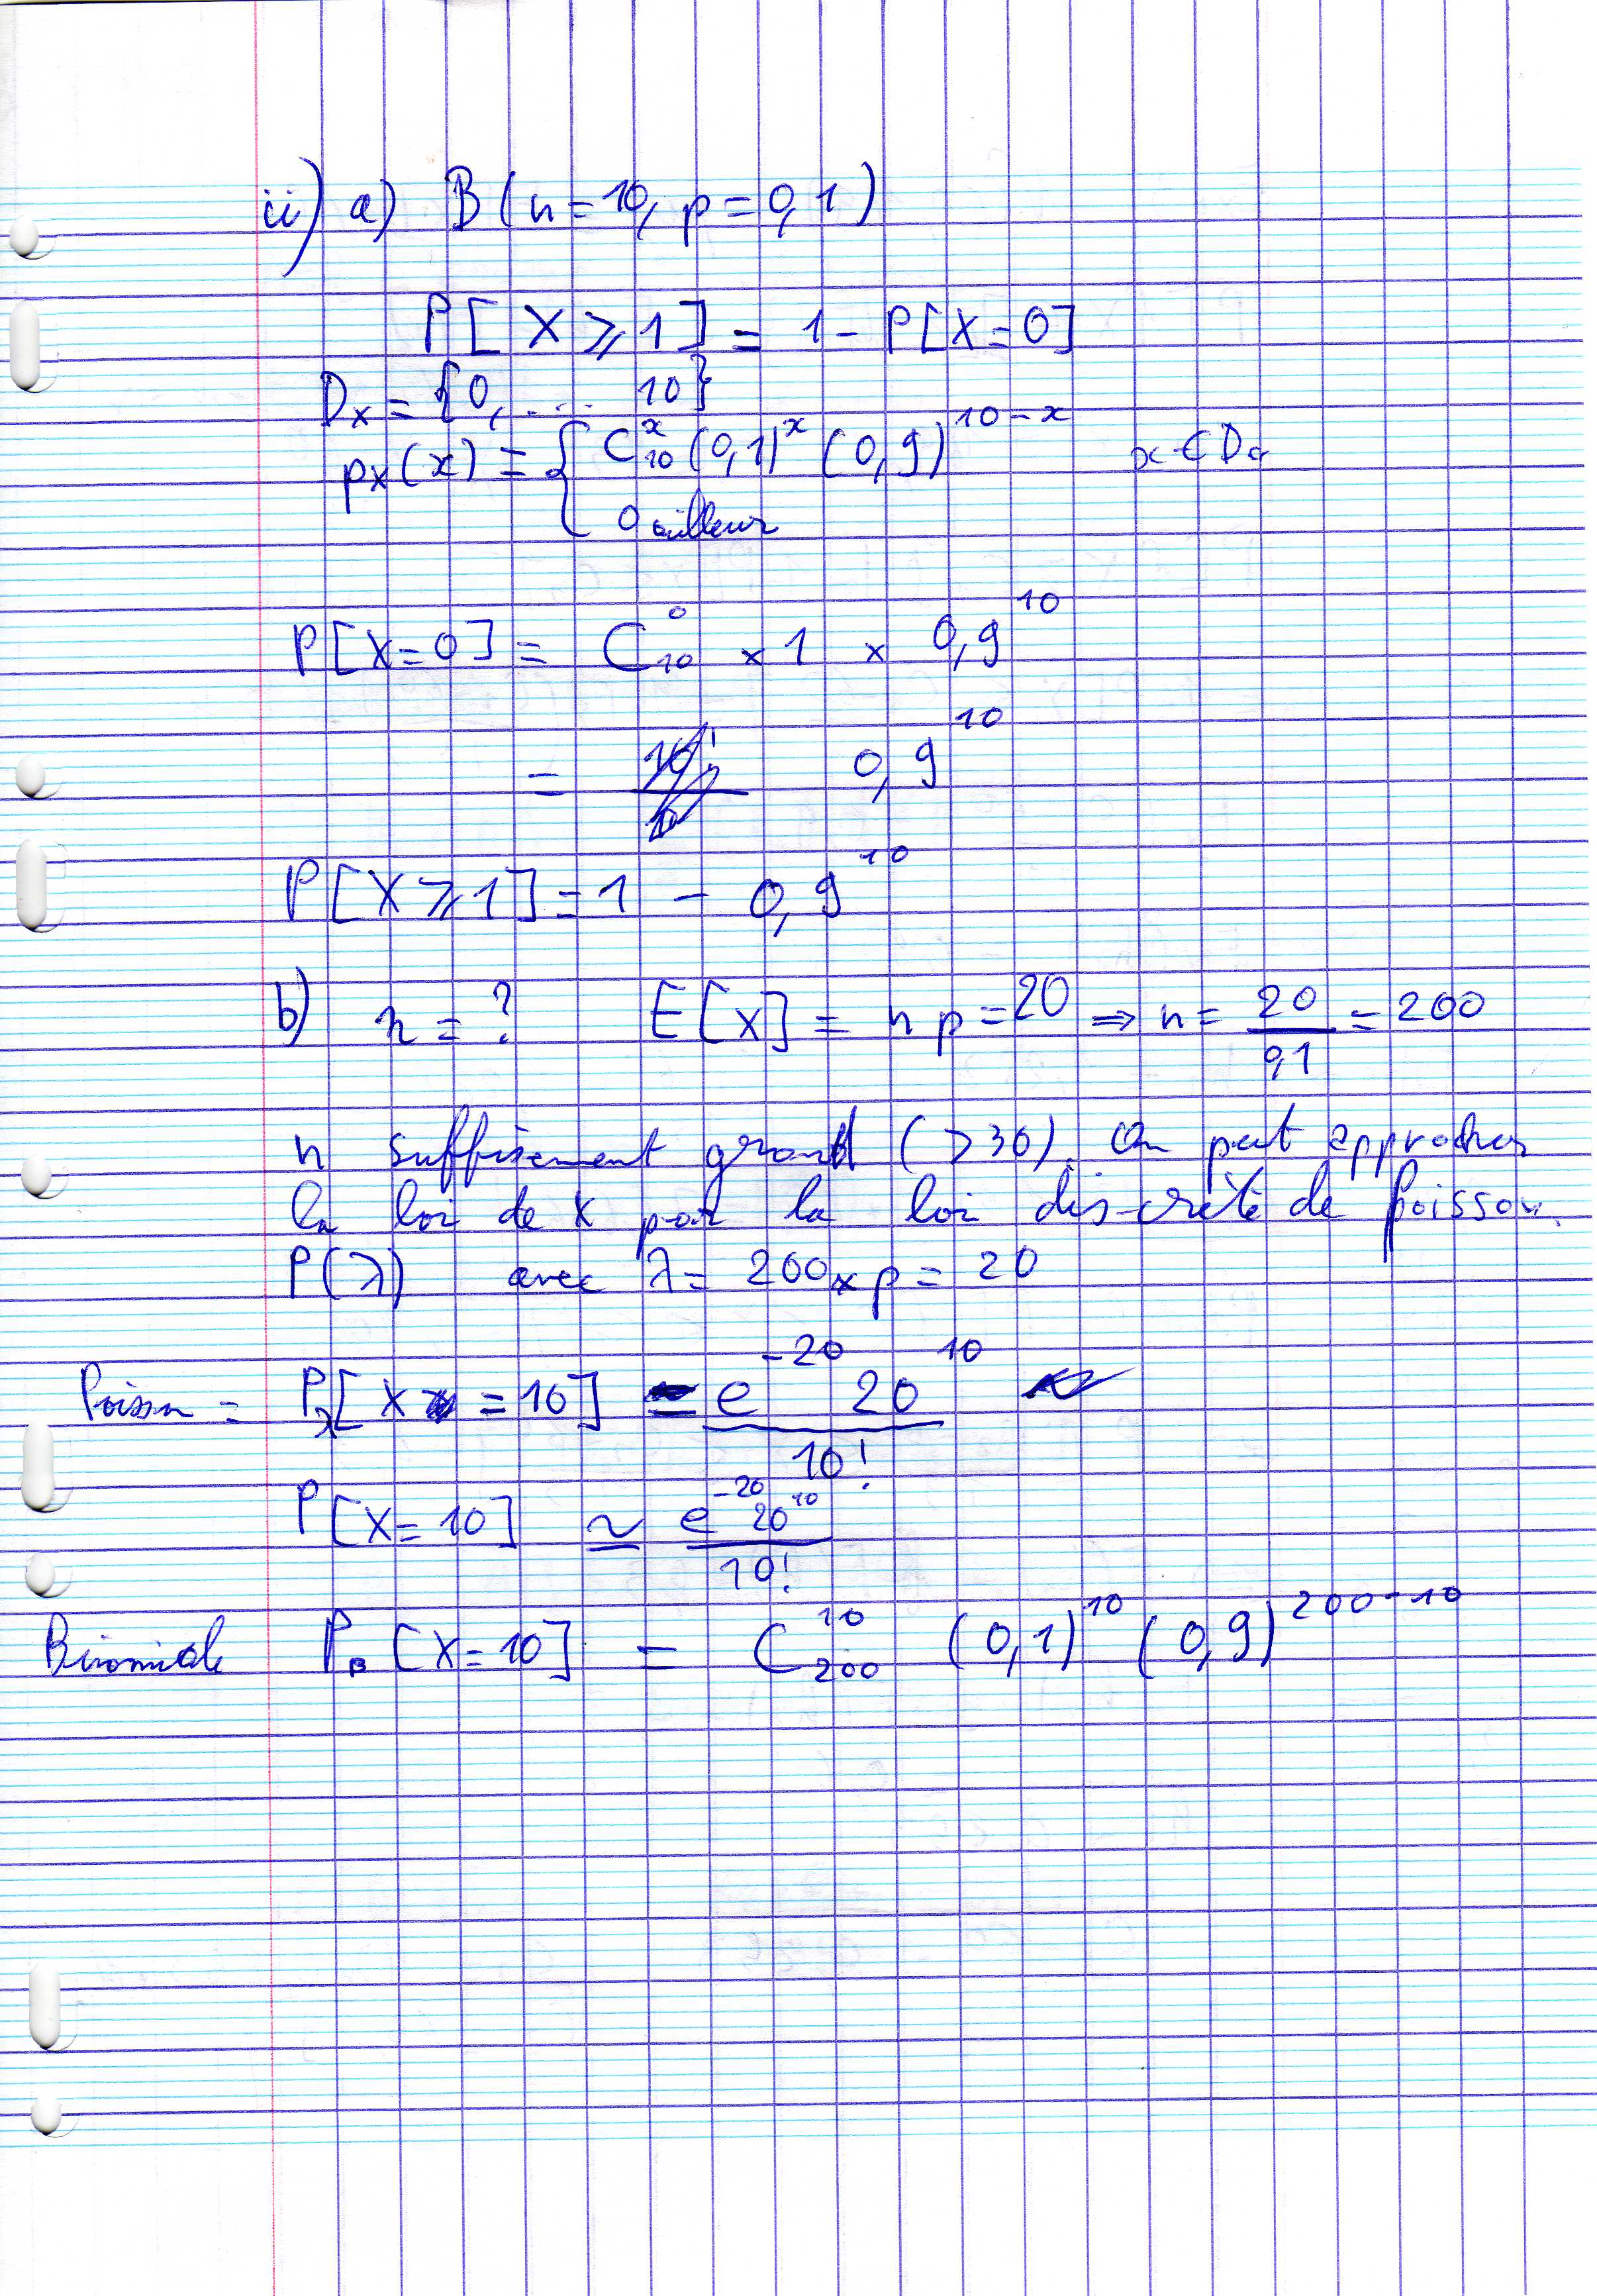 ii) a) B(n=10, p=0,1)
P[X⩾1] = 1 - P[X=0]
Dx = {0, .... 10}
px(x) = { C₁₀ˣ (0,1)ˣ (0,9)¹⁰⁻ˣ x ∈ Dx
0 ailleurs
P[X=0] = C₁₀⁰ × 1 × 0,9¹⁰
= 0,9¹⁰
P[X⩾1] = 1 - 0,9¹⁰
b) n = ? E[X] = np = 20 ⇒ n = 20/0,1 = 200
n suffisement grand (>30). On peut approcher
la loi de X par la loi discrète de poisson.
P(λ) avec λ = 200 × p = 20
Poisson = Pλ[X = 10] = e⁻²⁰ 20¹⁰ / 10!
P[X=10] ≃ e⁻²⁰ 20¹⁰ / 10!
Binomiale P_B [X=10] = C₂₀₀¹⁰ (0,1)¹⁰ (0,9)²⁰⁰⁻¹⁰